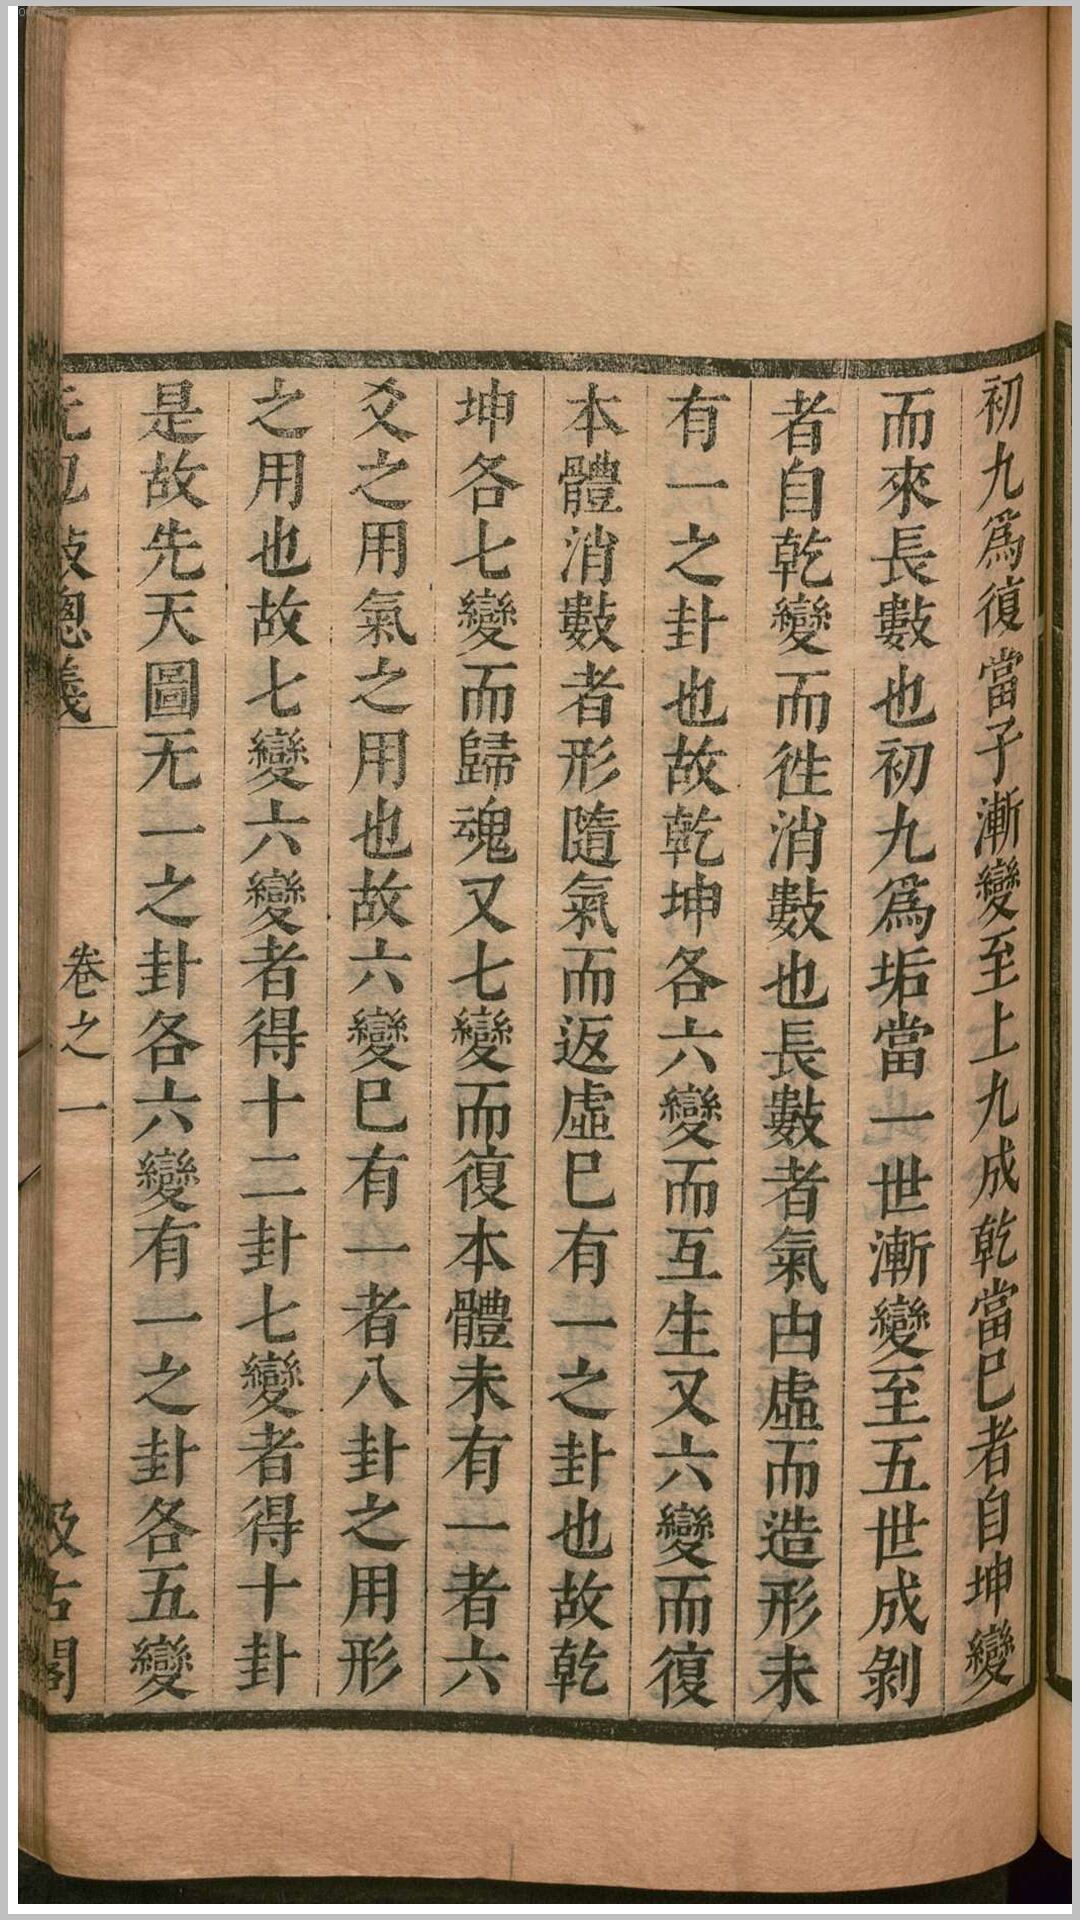 初九爲復當子漸變至上九成乾當巳者自坤變
而來長數也初九爲垢當一世漸變至五世成剝
者自乾變而徃消數也長數者氣由虛而造形未
有一之卦也故乾坤各六變而互生又六變而復
本體消數者形隨氣而返虛巳有一之卦也故乾
坤各七變而歸魂又七變而復本體未有一者六
爻之用氣之用也故六變巳有一者八卦之用形
之用也故七變六變者得十二卦七變者得十卦
是故先天圖无一之卦各六變有一之卦各五變
卷之一